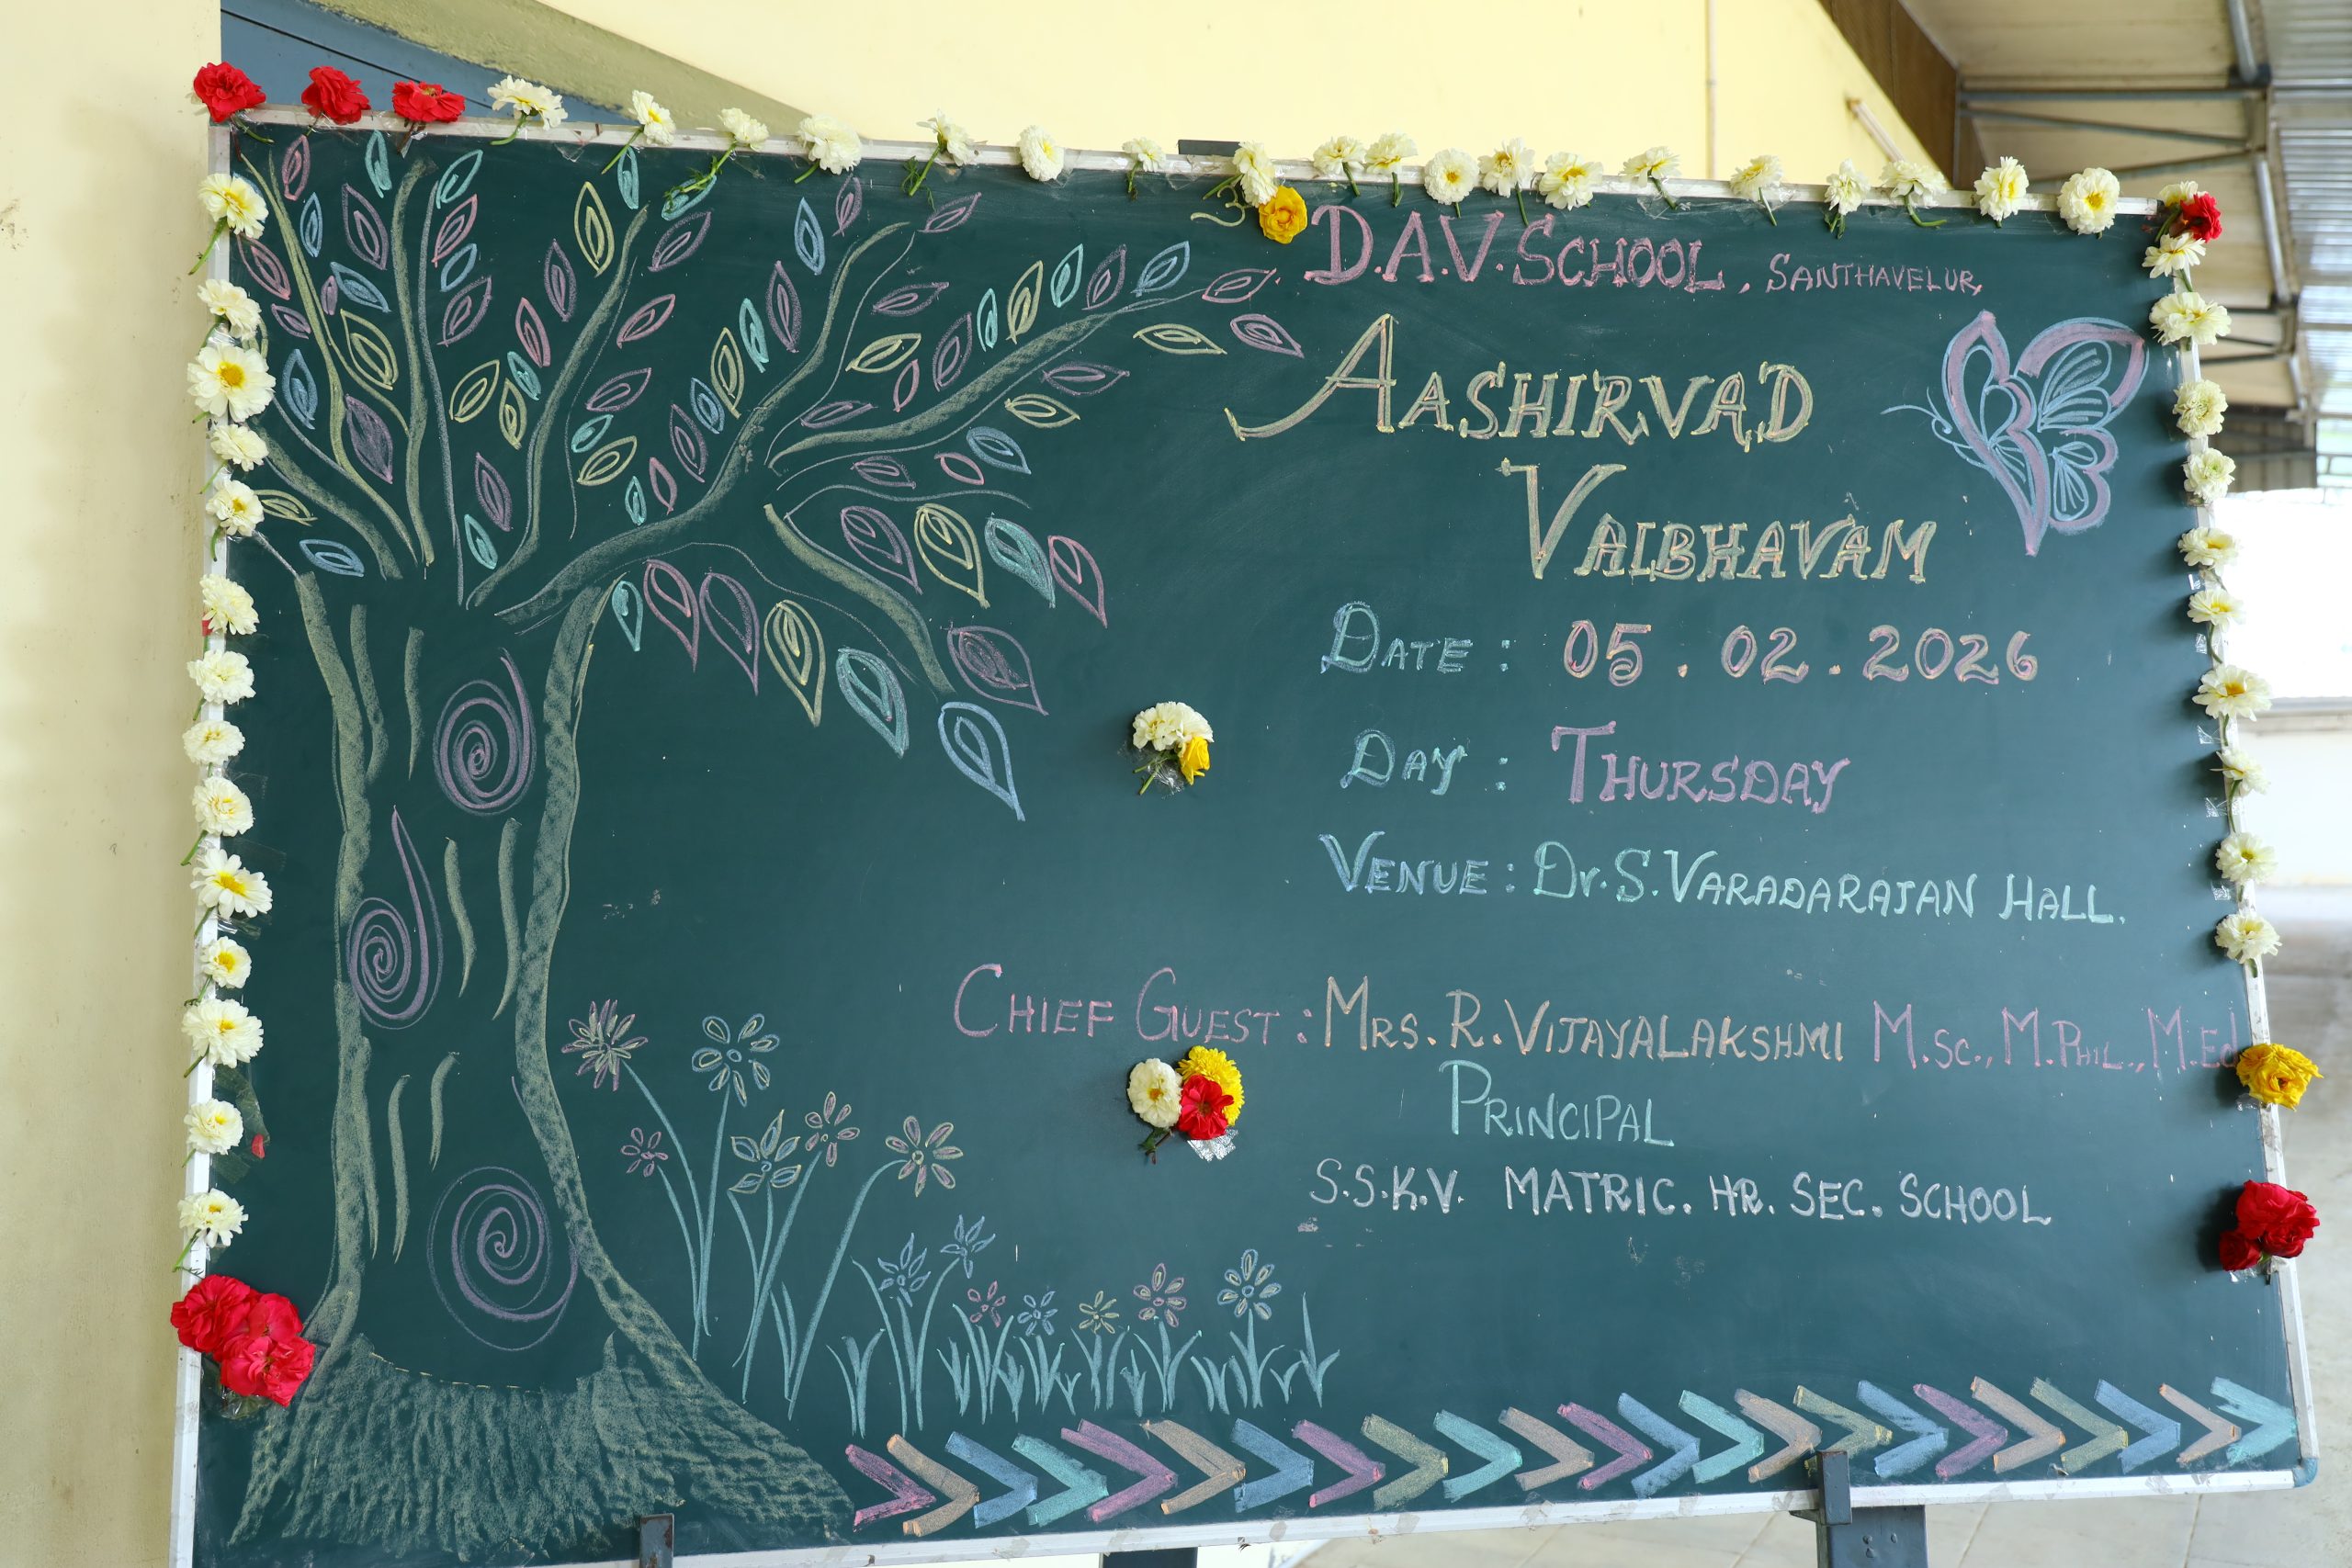 D.A.V. SCHOOL, SANTHAVELUR,
AASHIRVAD
VAIBHAVAM
DATE : 05.02.2026
DAY : THURSDAY
VENUE : Dr.S.VARADARAJAN HALL.
CHIEF GUEST : MRS.R.VIJAYALAKSHMI M.SC., M.PHIL., M.Ed
PRINCIPAL
S.S.K.V. MATRIC. HR. SEC. SCHOOL